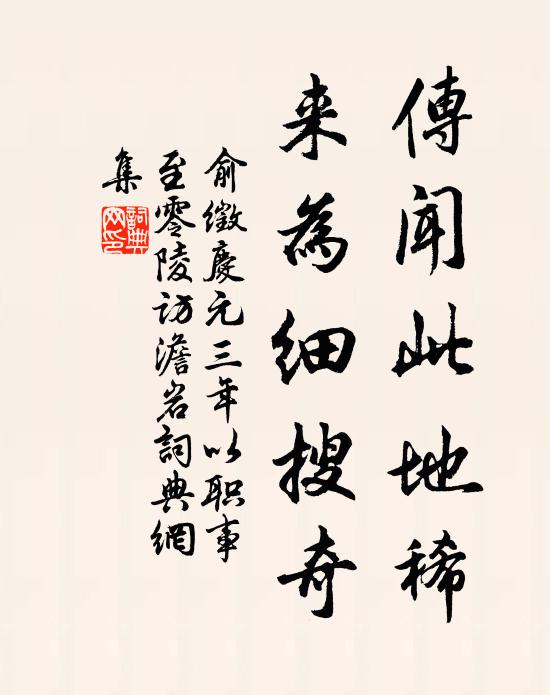 傳聞此地稀
来為細搜奇
俞徵慶元三年以职事
至零陵访澹岩詞典網
集
詞典
网印